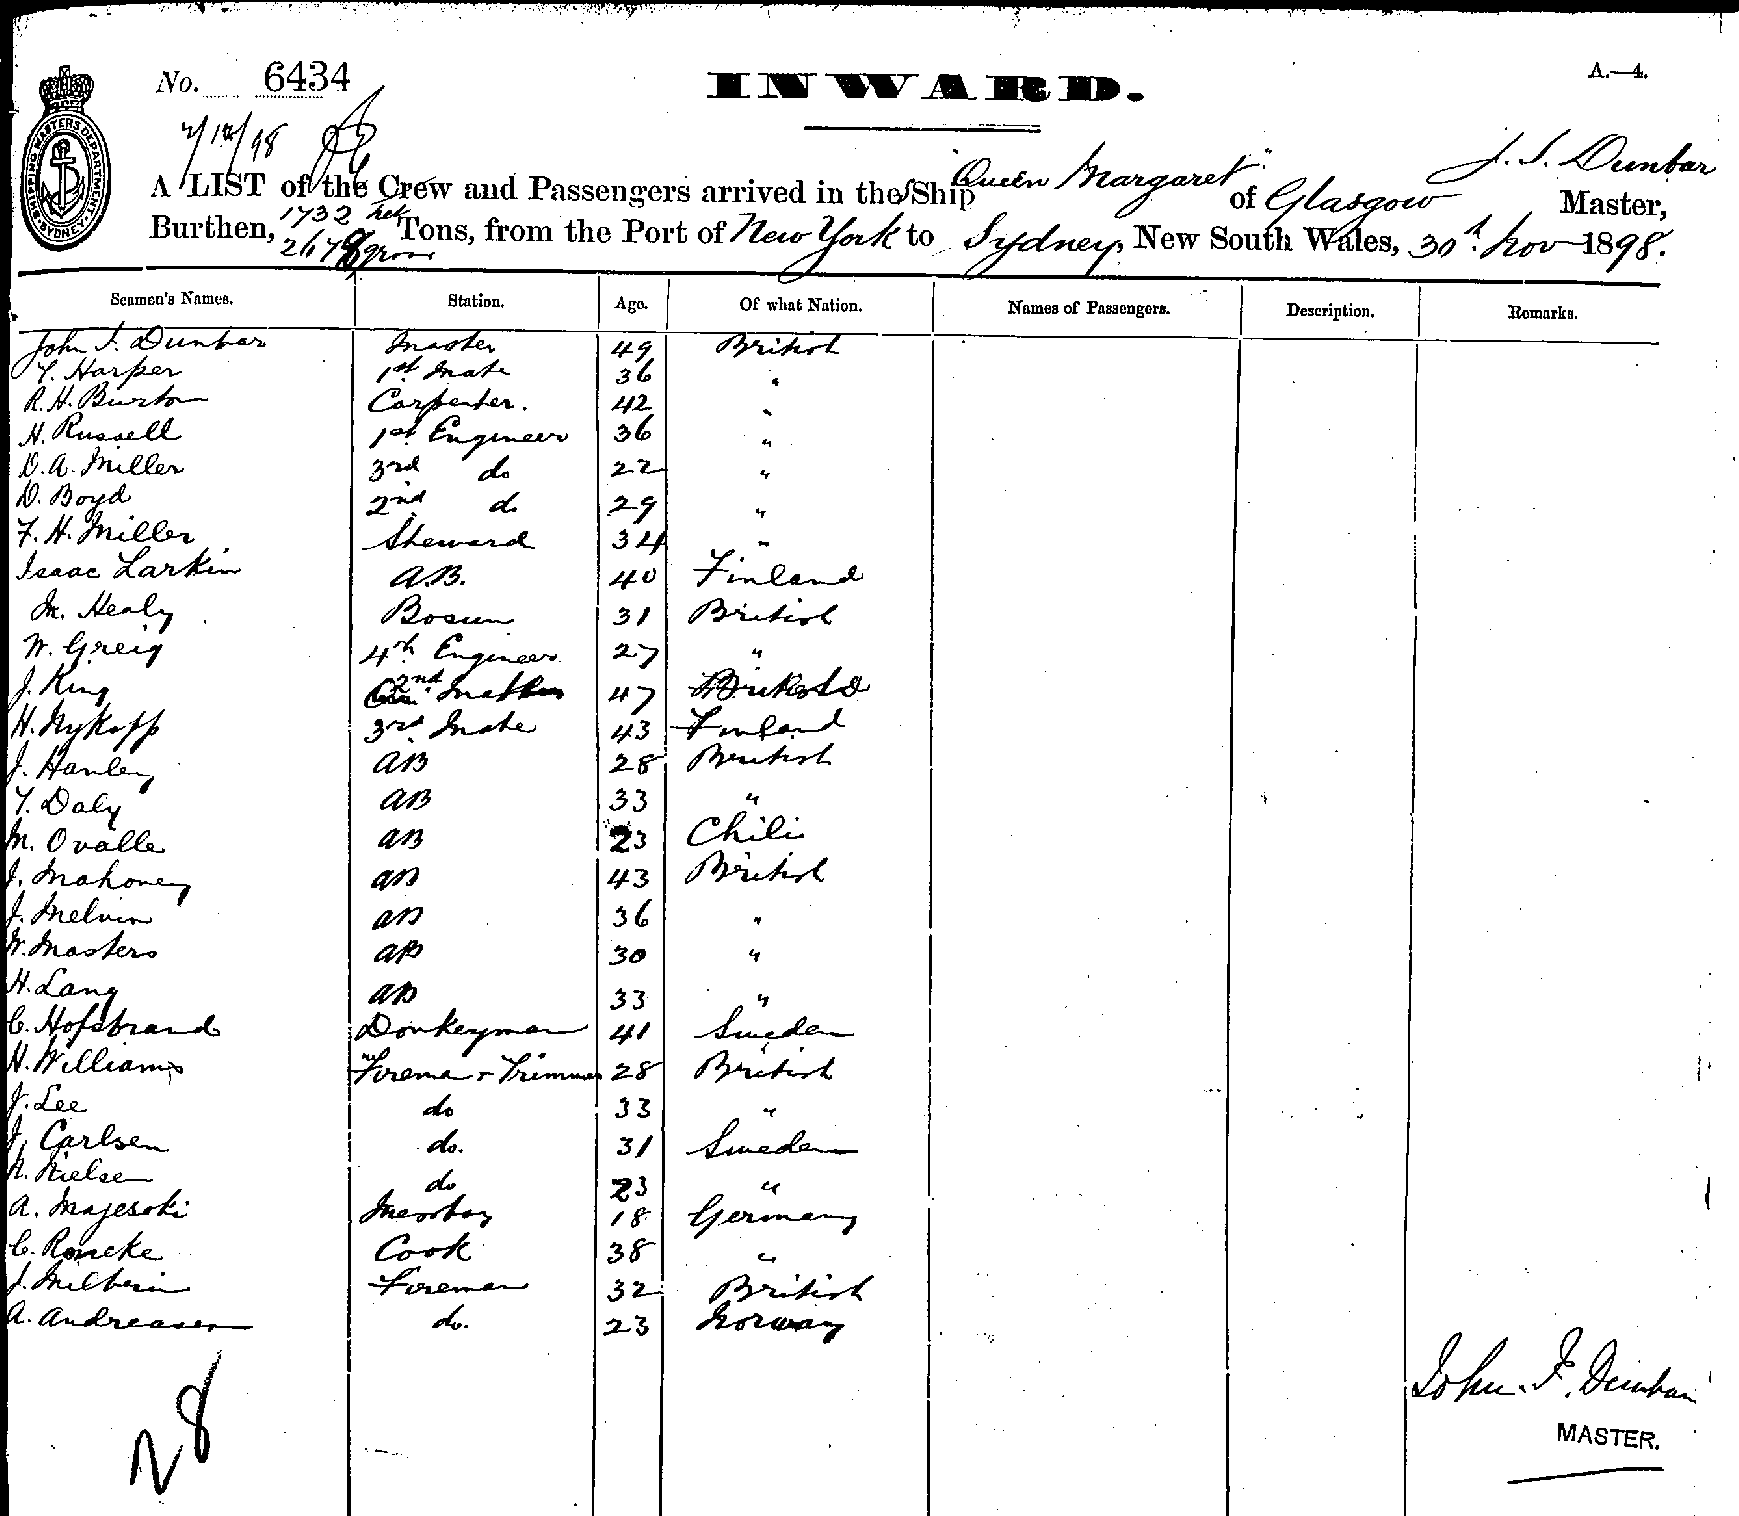 No. 6434
INWARD.
A.—4.
SHIPPING MASTERS DEPARTMENT. SYDNEY.
2/12/98
A LIST of the Crew and Passengers arrived in the Ship "Queen Margaret" of Glasgow J. F. Dunbar Master,
Burthen, 1732 net 2678 gross Tons, from the Port of New York to Sydney, New South Wales, 30th Nov 1898.
Seamen's Names. Station. Age. Of what Nation. Names of Passengers. Description. Remarks.
John F. Dunbar Master 49 British
T. Harper 1st Mate 36 "
R. H. Burton Carpenter. 42 "
H. Russell 1st Engineer 36 "
D. A. Miller 3rd do 22 "
D. Boyd 2nd do 29 "
F. H. Miller Steward 34 "
Isaac Larkin A.B. 40 Finland
M. Healy Bosun 31 British
W. Greig 4th Engineer 27 "
J. King 2nd 47
H. Nykopp 3rd Mate 43 Finland
J. Hanley AB 28 British
T. Daly AB 33 "
M. Ovalle AB 23 Chili
J. Mahoney AB 43 British
J. Melvin AB 36 "
W. Masters AB 30 "
H. Lang AB 33 "
C. Hofstrand Donkeyman 41 Sweden
H. Williams Fireman & Trimmer 28 British
J. Lee do 33 "
J. Carlsen do. 31 Sweden
N. Nielsen do 23 "
A. Majeroki Messboy 18 Germany
C. Roncke Cook 38 "
J. Milberin Fireman 32 British
A. Andreasen do. 23 Norway
28
John. F. Dunbar
MASTER.